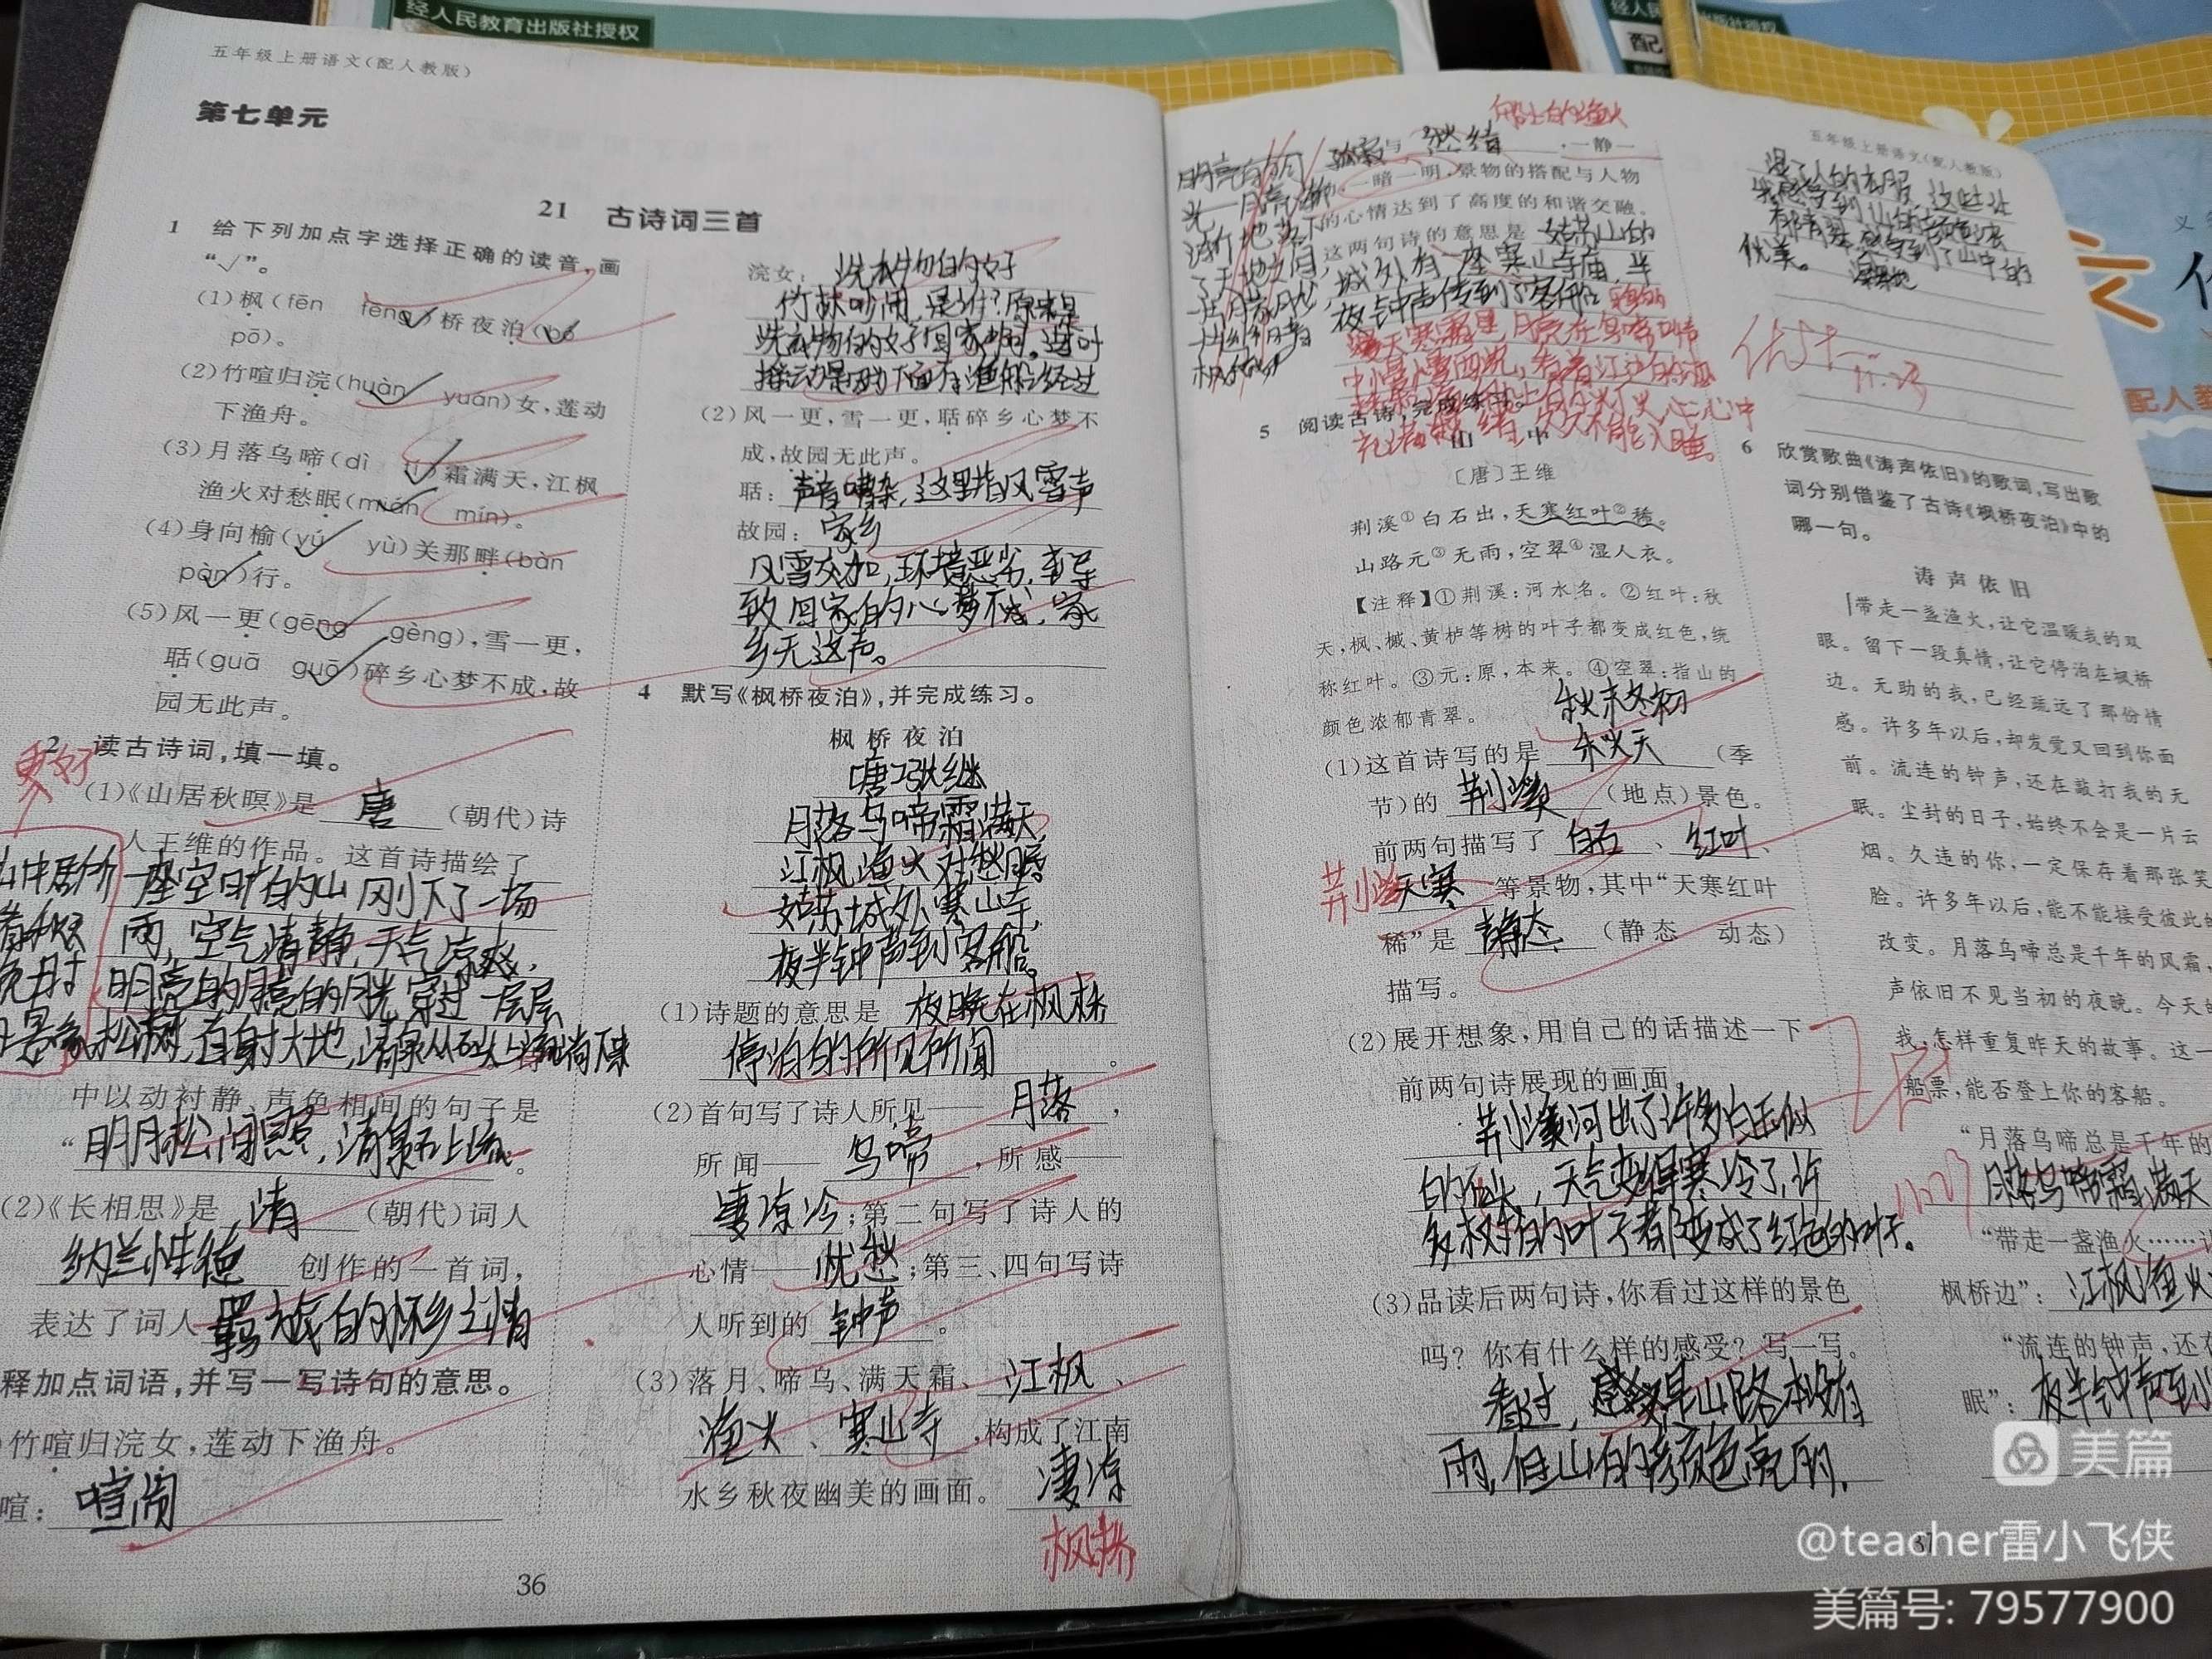 经人民教育出版社授权
五年级上册语文(配人教版)
第七单元
21 古诗词三首
1 给下列加点字选择正确的读音,画
“√”。
(1)枫(fēn fēng)桥夜泊(bó
pō)。
(2)竹喧归浣(huàn yuán)女,莲动
下渔舟。
(3)月落乌啼(dì tí)霜满天,江枫
渔火对愁眠(mián mín)。
(4)身向榆(yú yù)关那畔(bàn
pàn)行。
(5)风一更(gēng gèng),雪一更,
聒(guā guō)碎乡心梦不成,故
园无此声。
更好
2 读古诗词,填一填。
(1)《山居秋暝》是 唐 (朝代)诗
人王维的作品。这首诗描绘了
一座空旷的山刚下了一场
雨,空气清静,天气凉爽,
明亮的月亮的月光穿过一层层
松树,直射大地,清泉从石头上
中以动衬静、声色相间的句子是
“明月松间照,清泉石上流。”。
(2)《长相思》是 清 (朝代)词人
纳兰性德 创作的一首词,
表达了词人 羁旅的怀乡之情
释加点词语,并写一写诗句的意思。
竹喧归浣女,莲动下渔舟。
喧: 喧闹
36
浣女: 洗衣物的女子
竹林吵闹,是谁?原来是
洗衣物的女子回家啊,莲叶
摇动是因为下面有渔船经过
(2)风一更,雪一更,聒碎乡心梦不
成,故园无此声。
聒: 声音嘈杂,这里指风雪声
故园: 家乡
风雪交加,环境恶劣,导
致回家的心梦不成,家
乡无这声。
4 默写《枫桥夜泊》,并完成练习。
枫桥夜泊
[唐]张继
月落乌啼霜满天,
江枫渔火对愁眠。
姑苏城外寒山寺,
夜半钟声到客船。
(1)诗题的意思是 夜晚在枫桥
停泊的所见所闻 。
(2)首句写了诗人所见—— 月落 ,
所闻—— 乌啼 ,所感——
凄凉冷 ;第二句写了诗人的
心情—— 忧愁 ;第三、四句写诗
人听到的 钟声 。
(3)落月、啼乌、满天霜、 江枫 、
渔火 、 寒山寺 ,构成了江南
水乡秋夜幽美的画面。 凄凉
枫桥
船上的渔火
与 愁绪 ,一静一
动,一暗一明,景物的搭配与人物
的心情达到了高度的和谐交融。
这两句诗的意思是 姑苏山的
城外有一座寒山寺庙,半
夜钟声传到了客船
5 阅读古诗,完成练习。
山 中
〔唐〕王维
荆溪①白石出,天寒红叶②稀。
山路元③无雨,空翠④湿人衣。
【注释】①荆溪:河水名。②红叶:秋
天,枫、槭、黄栌等树的叶子都变成红色,统
称红叶。③元:原,本来。④空翠:指山的
颜色浓郁青翠。
秋末冬初
(1)这首诗写的是 秋天 (季
节)的 荆溪 (地点)景色。
前两句描写了 白石 、 红叶 、
荆溪 天寒 等景物,其中“天寒红叶
稀”是 静态 (静态 动态)
描写。
(2)展开想象,用自己的话描述一下
前两句诗展现的画面。
荆溪河出了许多白玉似
的石头,天气变得寒冷了,许
多树的叶子都变成了红色的叶子。
(3)品读后两句诗,你看过这样的景色
吗?你有什么样的感受?写一写。
看过,感受是山路本没有
雨,但山的颜色亮丽,
五年级上册语文(配人教版)
湿了人的衣服,这时让
优美。
6 欣赏歌曲《涛声依旧》的歌词,写出歌
词分别借鉴了古诗《枫桥夜泊》中的
哪一句。
涛声依旧
带走一盏渔火,让它温暖我的双
眼。留下一段真情,让它停泊在枫桥
边。无助的我,已经疏远了那份情
感。许多年以后,却发觉又回到你面
前。流连的钟声,还在敲打我的无
眠。尘封的日子,始终不会是一片云
烟。久违的你,一定保存着那张笑
脸。许多年以后,能不能接受彼此的
改变。月落乌啼总是千年的风霜,
声依旧不见当初的夜晚。今天的
我,怎样重复昨天的故事。这一
船票,能否登上你的客船。
“月落乌啼总是千年的
月落乌啼霜满天
“带走一盏渔火……
枫桥边”: 江枫渔火
“流连的钟声,还在
眠”: 夜半钟声到
配人教
美篇
@teacher雷小飞侠
美篇号: 79577900